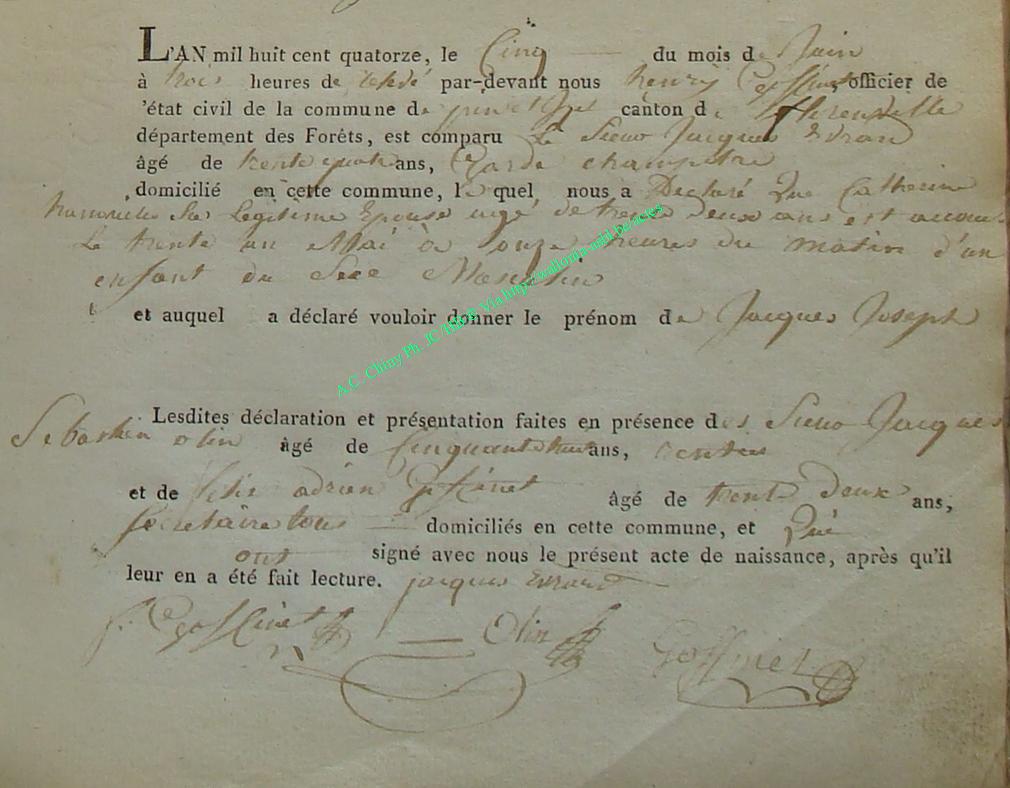 L'AN mil huit cent quatorze, le Cinq du mois de Juin
à trois heures de relevé par-devant nous henry Gofflinet officier de
l'état civil de la commune de canton de
département des Forêts, est comparu Le Sieur Jacques Evrard
âgé de trente quatre ans, Garde champêtre
domicilié en cette commune, le quel nous a Declaré Que Catherine
Sa Legitime Epouse agé de trente deux ans est accouc
Le trente un Mai à onze heures du matin d'un
enfant du Sexe Masculin
et auquel a déclaré vouloir donner le prénom de Jacques Joseph
Lesdites déclaration et présentation faites en présence des Sieur Jacques
Sebastien olin âgé de Cinquante ans, rentier
et de adrien Goffinet âgé de trente Deux ans,
Secretaire tous domiciliés en cette commune, et Qui
ont signé avec nous le présent acte de naissance, après qu'il
leur en a été fait lecture. jacques Evrard
Goffinet Olin Goffinet
A.C. Chiny Ph. JC Via http://wallonia.mid.be/actes